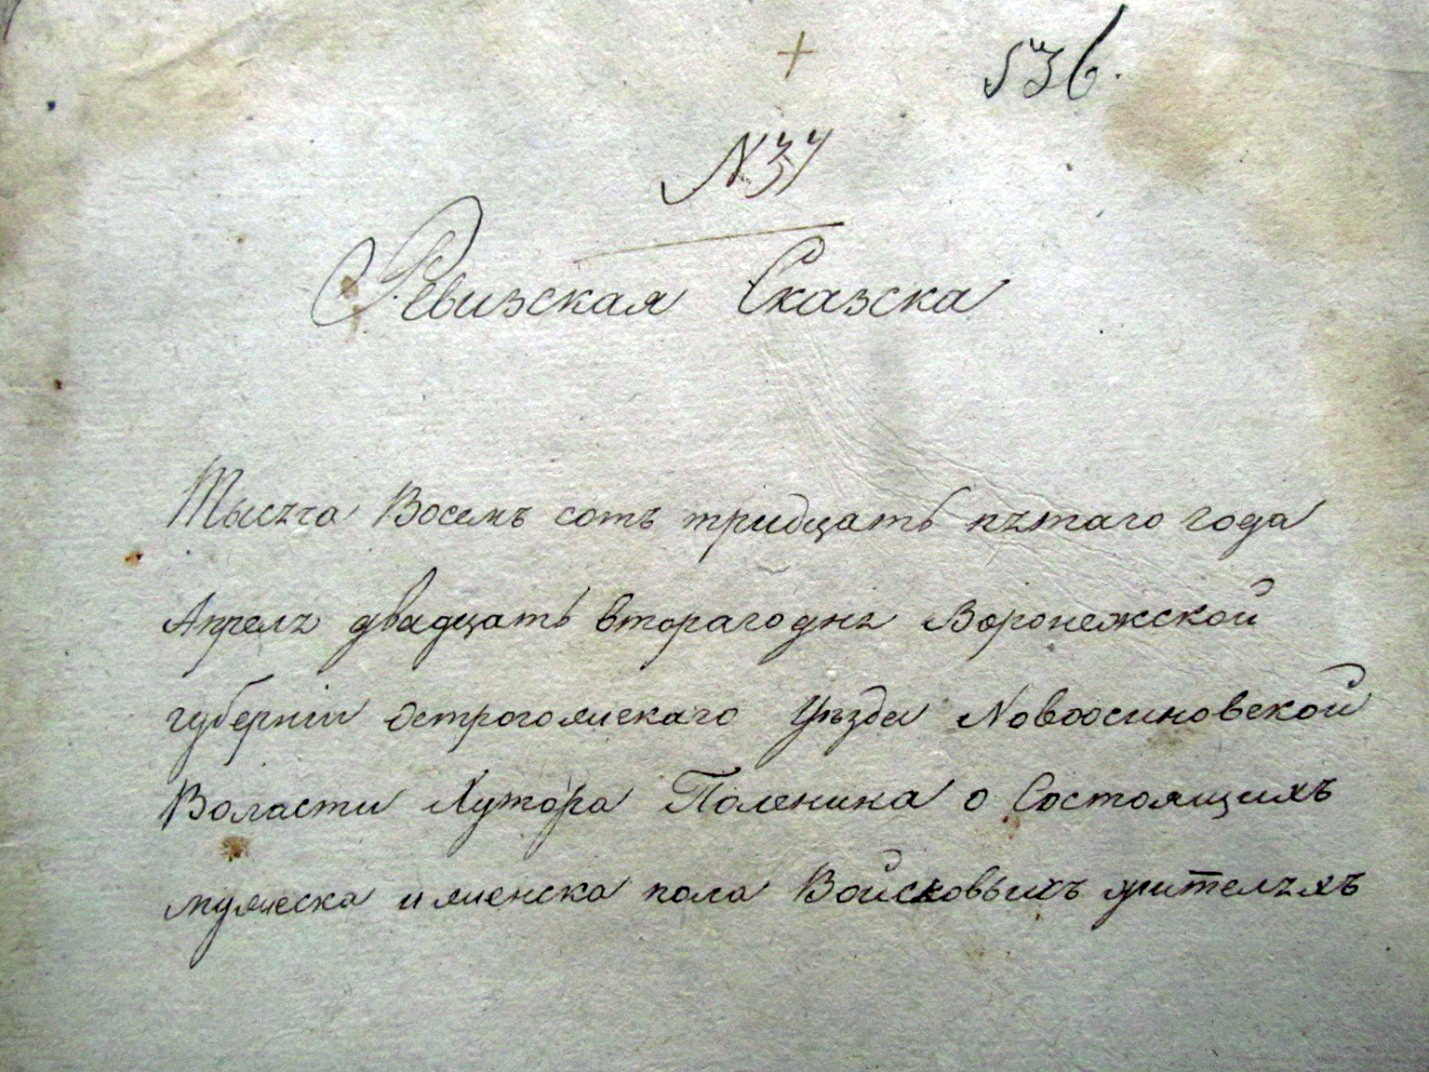 536.
N 37
Ревизская Сказска
Тысяча Восемъ сотъ тридцать пятаго года
Апреля двадцать втораго дня Воронежской
губерніи Острогожскаго Уѣзда Новоосиновской
Воласти Хутора Поленика о Состоящихъ
мужеска и женска пола Войсковыхъ жителяхъ